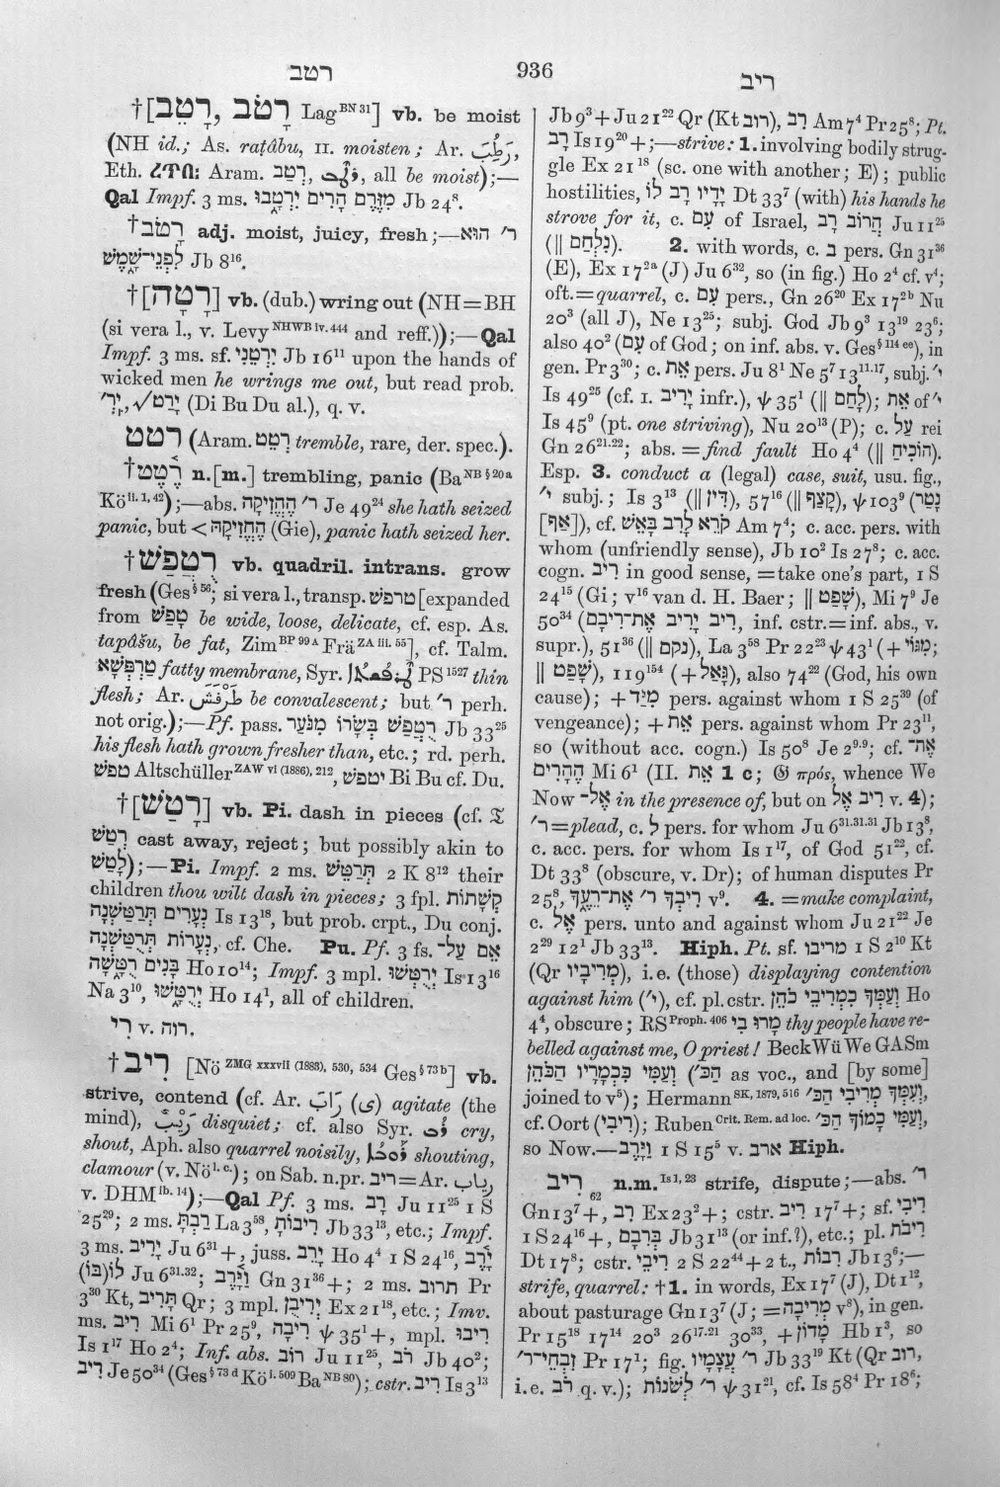 רטב
936
ריב
†[רָטֵב, רָטֹב Lag BN 31] vb. be moist
(NH id.; As. raṭâbu, II. moisten; Ar. رَطُبَ,
Eth. Aram. רְטֵב, all be moist);—
Qal Impf. 3 ms. מִזֶּרֶם הָרִים יִרְטָבוּ Jb 24⁸.
†רָטֹב adj. moist, juicy, fresh;—ר׳ הוּא
לִפְנֵי־שָׁמֶשׁ Jb 8¹⁶.
†[רָטָה] vb. (dub.) wring out (NH=BH
(si vera l., v. Levy NHWB iv. 444 and reff.));—Qal
Impf. 3 ms. sf. יִרְטֵנִי Jb 16¹¹ upon the hands of
wicked men he wrings me out, but read prob.
יִרְ׳, √יָרַט (Di Bu Du al.), q. v.
רטט (Aram. רְטֵט tremble, rare, der. spec.).
†רֶטֶט n.[m.] trembling, panic (Ba NB § 20a
Kö ii. 1, 42);—abs. ר׳ הֶחֱזִיקָה Je 49²⁴ she hath seized
panic, but < הֶחֱזִיקָהּ (Gie), panic hath seized her.
†רֻטֲפַשׁ vb. quadril. intrans. grow
fresh (Ges § 56; si vera l., transp. טרפשׁ [expanded
from טָפַשׁ be wide, loose, delicate, cf. esp. As.
tapâšu, be fat, Zim BP 99 A Frä ZA iii. 55], cf. Talm.
טַרְפְּשָׁא fatty membrane, Syr. PS 1527 thin
flesh; Ar. طَرْفَشَ be convalescent; but ר׳ perh.
not orig.);—Pf. pass. רֻטֲפַשׁ בְּשָׂרוֹ מִנֹּעַר Jb 33²⁵
his flesh hath grown fresher than, etc.; rd. perh.
טפשׁ Altschüller ZAW vi (1886), 212, יטפשׁ Bi Bu cf. Du.
†[רָטַשׁ] vb. Pi. dash in pieces (cf. 𝔗
רְטַשׁ cast away, reject; but possibly akin to
לָטַשׁ);—Pi. Impf. 2 ms. תְּרַטֵּשׁ 2 K 8¹² their
children thou wilt dash in pieces; 3 fpl. קְשָׁתוֹת
נְעָרִים תְּרַטַּשְׁנָה Is 13¹⁸, but prob. crpt., Du conj.
נְעָרוֹת תְּרֻטַּשְׁנָה, cf. Che. Pu. Pf. 3 fs. אֵם עַל־
בָּנִים רֻטָּשָׁה Ho 10¹⁴; Impf. 3 mpl. יְרֻטְּשׁוּ Is 13¹⁶
Na 3¹⁰, יְרֻטָּשׁוּ Ho 14¹, all of children.
רִי v. רוה.
†רִיב [Nö ZMG xxxvii (1883), 530, 534 Ges § 73 b] vb.
strive, contend (cf. Ar. رَابَ (ى) agitate (the
mind), رَيْبٌ disquiet; cf. also Syr. cry,
shout, Aph. also quarrel noisily, shouting,
clamour (v. Nö l. c.); on Sab. n.pr. ריב=Ar. رياب
v. DHM ib. 14);—Qal Pf. 3 ms. רָב Ju 11²⁵ 1 S
25²⁹; 2 ms. רַבְתָּ La 3⁵⁸, רִיבוֹתָ Jb 33¹³, etc.; Impf.
3 ms. יָרִיב Ju 6³¹+, juss. יָרֵב Ho 4⁴ 1 S 24¹⁶, יָרֶב
לוֹ (בוֹ) Ju 6³¹·³²; וַיָּרֶב Gn 31³⁶+; 2 ms. תרוב Pr
3³⁰ Kt, תָּרִיב Qr; 3 mpl. יְרִיבֻן Ex 21¹⁸, etc.; Imv.
ms. רִיב Mi 6¹ Pr 25⁹, רִיבָה ψ 35¹+, mpl. רִיבוּ
Is 1¹⁷ Ho 2⁴; Inf. abs. רוֹב Ju 11²⁵, רֹב Jb 40²;
רִיב Je 50³⁴ (Ges § 73 d Kö i. 509 Ba NB 80); cstr. רִיב Is 3¹³
Jb 9³+Ju 21²² Qr (Kt רוב), רִב Am 7⁴ Pr 25⁸; Pt.
רָב Is 19²⁰+;—strive: 1. involving bodily strug-
gle Ex 21¹⁸ (sc. one with another; E); public
hostilities, יָדָיו רָב לוֹ Dt 33⁷ (with) his hands he
strove for it, c. עִם of Israel, הֲרוֹב רָב Ju 11²⁵
(‖ נִלְחַם). 2. with words, c. בְּ pers. Gn 31³⁶
(E), Ex 17²ᵃ (J) Ju 6³², so (in fig.) Ho 2⁴ cf. v⁴;
oft.=quarrel, c. עִם pers., Gn 26²⁰ Ex 17²ᵇ Nu
20³ (all J), Ne 13²⁵; subj. God Jb 9³ 13¹⁹ 23⁶;
also 40² (עִם of God; on inf. abs. v. Ges § 114 ee), in
gen. Pr 3³⁰; c. אֵת pers. Ju 8¹ Ne 5⁷ 13¹¹·¹⁷, subj. י׳
Is 49²⁵ (cf. I. יָרִיב infr.), ψ 35¹ (‖ לָחַם); אֵת of י׳
Is 45⁹ (pt. one striving), Nu 20¹³ (P); c. עַל rei
Gn 26²¹·²²; abs. =find fault Ho 4⁴ (‖ הוֹכִיחַ).
Esp. 3. conduct a (legal) case, suit, usu. fig.,
י׳ subj.; Is 3¹³ (‖ דִּין), 57¹⁶ (‖ קָצַף), ψ 103⁹ (נָטַר
[אַף]), cf. קֹרֵא לָרִב בָּאֵשׁ Am 7⁴; c. acc. pers. with
whom (unfriendly sense), Jb 10² Is 27⁸; c. acc.
cogn. רִיב in good sense, =take one's part, 1 S
24¹⁵ (Gi; v¹⁶ van d. H. Baer; ‖ שָׁפַט), Mi 7⁹ Je
50³⁴ (רִיב יָרִיב אֶת־רִיבָם, inf. cstr.=inf. abs., v.
supr.), 51³⁶ (‖ נקם), La 3⁵⁸ Pr 22²³ ψ 43¹ (+מִגּוֹי;
‖ שָׁפַט), 119¹⁵⁴ (+גָּאַל), also 74²² (God, his own
cause); +מִיַּד pers. against whom 1 S 25³⁹ (of
vengeance); +אֵת pers. against whom Pr 23¹¹,
so (without acc. cogn.) Is 50⁸ Je 2⁹·⁹; cf. אֶת־
הֶהָרִים Mi 6¹ (II. אֵת 1 c; 𝔊 πρός, whence We
Now אֶל־ in the presence of, but on רִיב אֶל v. 4);
ר׳=plead, c. לְ pers. for whom Ju 6³¹·³¹·³¹ Jb 13⁸,
c. acc. pers. for whom Is 1¹⁷, of God 51²², cf.
Dt 33⁸ (obscure, v. Dr); of human disputes Pr
25⁸, רִיבְךָ ר׳ אֶת־רֵעֶךָ v⁹. 4. =make complaint,
c. אֶל pers. unto and against whom Ju 21²² Je
2²⁹ 12¹ Jb 33¹³. Hiph. Pt. sf. מריבו 1 S 2¹⁰ Kt
(Qr מְרִיבָיו), i.e. (those) displaying contention
against him (י׳), cf. pl. cstr. וְעַמְּךָ כִּמְרִיבֵי כֹהֵן Ho
4⁴, obscure; RS Proph. 406 מרו בי thy people have re-
belled against me, O priest! Beck Wü We GASm
וְעַמִּי כִּכְמָרָיו הַכֹּהֵן (הַכּ׳ as voc., and [by some]
joined to v⁵); Hermann SK, 1879, 516 וְעַמְּךָ מְרִיבֵי הַכּ׳,
cf. Oort (מְרִיבַי); Ruben Crit. Rem. ad loc. וְעַמִּי כָמוֹךָ הַכּ׳,
so Now.—וַיָּרֶב 1 S 15⁵ v. ארב Hiph.
רִיב n.m. Is 1, 23 strife, dispute;—abs. ר׳
62
Gn 13⁷+, רִב Ex 23²+; cstr. רִיב 17⁷+; sf. רִיבִי
1 S 24¹⁶+, בְּרִבָם Jb 31¹³ (or inf.?), etc.; pl. רִיבֹת
Dt 17⁸; cstr. רִיבֵי 2 S 22⁴⁴+2 t., רִבוֹת Jb 13⁶;—
strife, quarrel: †1. in words, Ex 17⁷ (J), Dt 1¹²,
about pasturage Gn 13⁷ (J; =מְרִיבָה v⁸), in gen.
Pr 15¹⁸ 17¹⁴ 20³ 26¹⁷·²¹ 30³³, +מָדוֹן Hb 1³, so
זִבְחֵי־ר׳ Pr 17¹; fig. ר׳ עֲצָמָיו Jb 33¹⁹ Kt (Qr רוב,
i.e. רֹב q. v.); ר׳ לְשֹׁנוֹת ψ 31²¹, cf. Is 58⁴ Pr 18⁶;